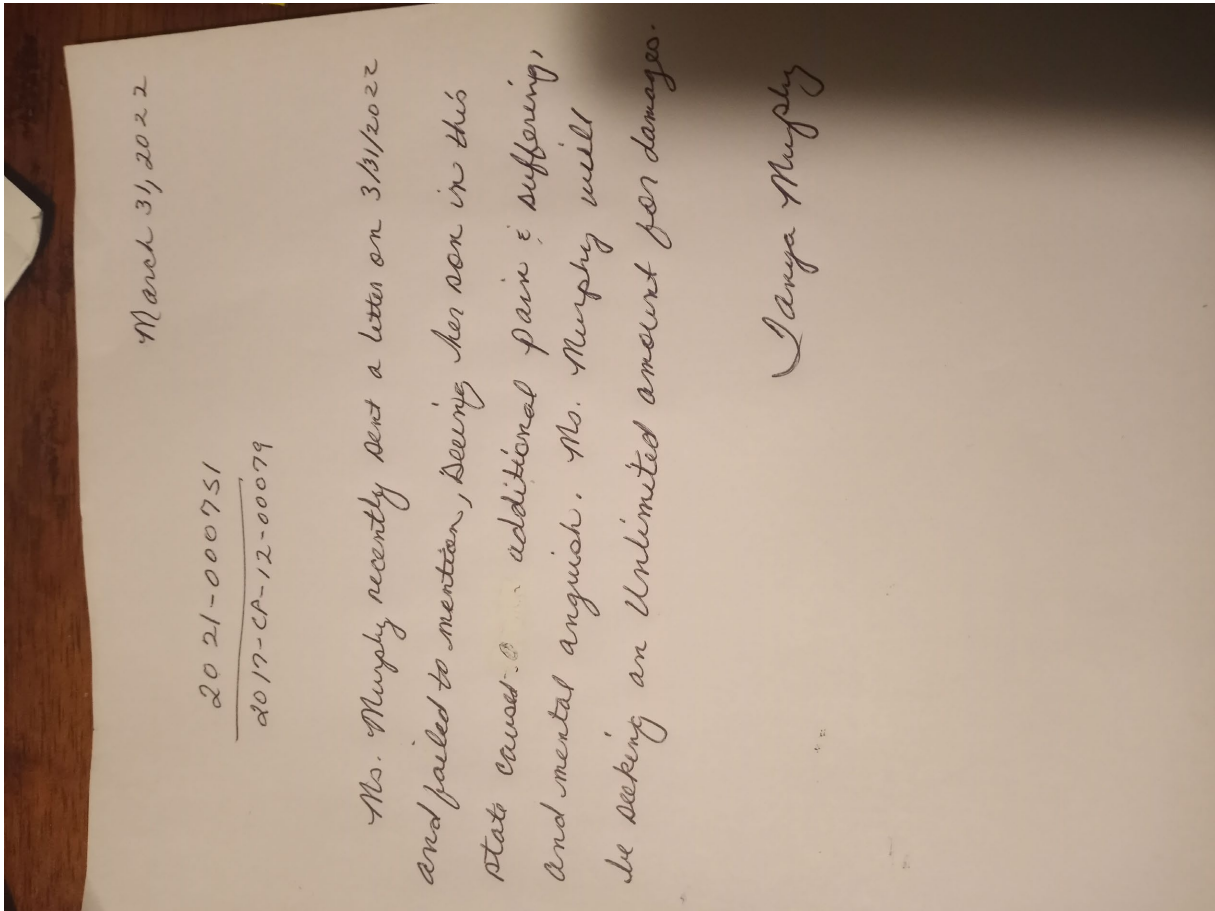 March 31, 2022
2021-000751
2017-CP-12-00079
Ms. Murphy recently sent a letter on 3/31/2022
and failed to mention, seeing her son in this
state caused additional pain & suffering,
and mental anguish. Ms. Murphy will
be seeking an Unlimited amount for damages.
Tanya Murphy